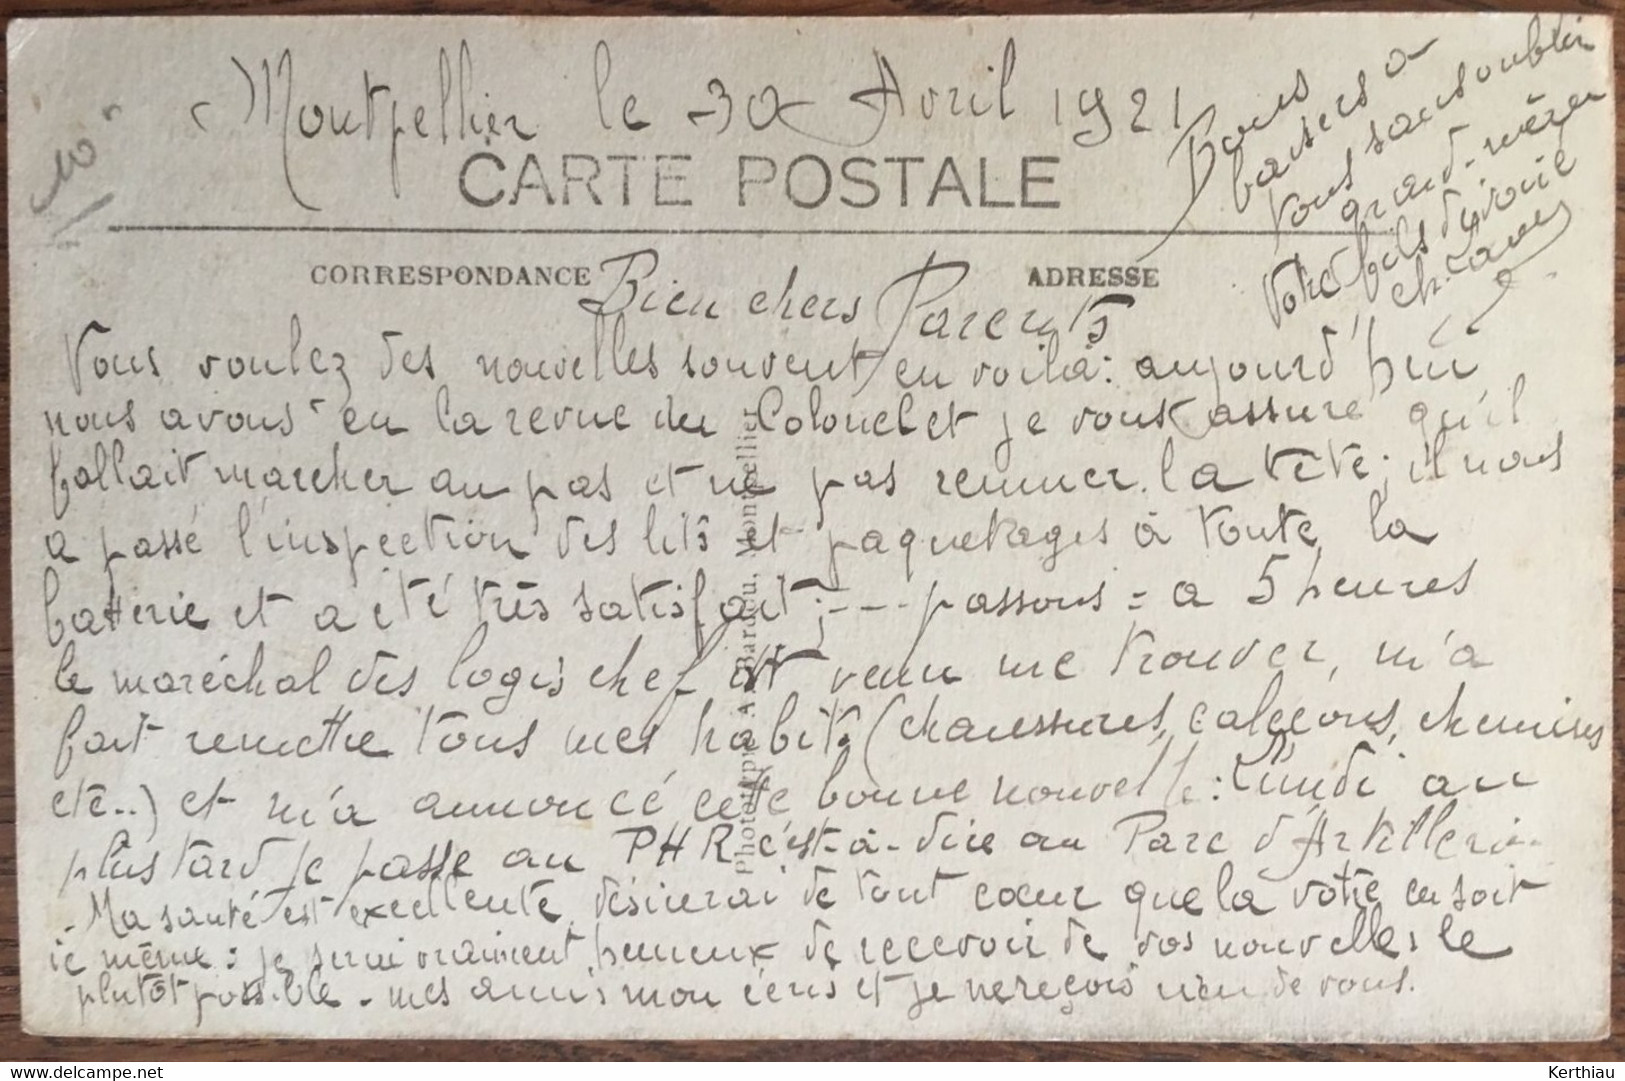 10
Montpellier le 30 Avril 1921
CARTE POSTALE
CORRESPONDANCE
ADRESSE
Bien chers Parents
Vous voulez des nouvelles souvent en voilà : aujourd'hui
nous avons eu la revue du Colonel et je vous assure qu'il
fallait marcher au pas et ne pas remuer la tête ; il nous
a passé l'inspection des lits et paquetages à toute la
batterie et a été très satisfait ; --- passons = a 5 heures
le maréchal des logis chef est venu me trouver, m'a
fait remettre tous mes habits (chaussures, caleçons, chemises
etc..) et m'a annoncé cette bonne nouvelle : Lundi au
plus tard je passe au PHR c'est-à-dire au Parc d'Artillerie
- Ma santé est excellente, désirerai de tout cœur que la votre en soit
de même : je serai vraiment heureux de recevoir de vos nouvelles le
plutôt possible - mes amis m'on écris et je ne reçois rien de vous.
Bons
baisers à
vous sans oublier
grand-mère
Votre fils dévoué
Ch.
Phototypie A. Bardou, Montpellier
delcampe.net
Kerthiau